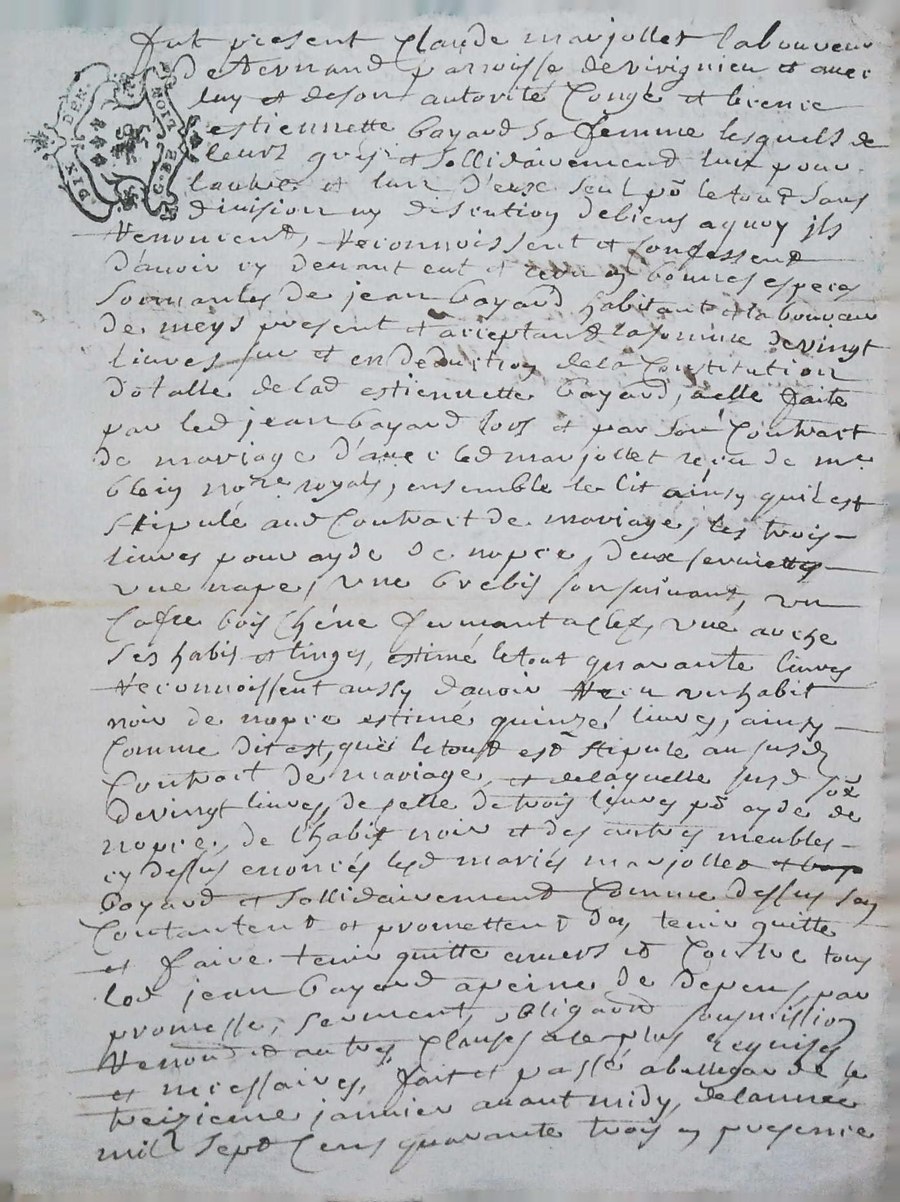 fut present Claude marjollet laboureur
de Vernand parroisse de virignieu et avec
luy et de son autorité Congé et licence
estiennette bayard sa femme lesquels de
leurs gré et sollidairement lun pour
lautre et lun d'eux seul po le tout sans
DIX DEN.
G. DE
division ny discution de biens a quoy ils
Renoncent, Reconnoissent et confessent
d'avoir cy devant eut et receu en bonnes especes
sonnantes de jean bayard habitant et laboureur
de meys present et acceptant la somme de vingt
livres sur et en deduction de la Constitution
dotalle de lad estiennette bayard, a elle faite
par led jean bayard lors et par son Contract
de mariage d'avec led marjollet reçu de me
blein nore royal, ensemble le lit ainsy quil est
stipulé aud Contract de mariage, les trois
livres pour ayde de nopce, deux serviettes
une nape, une brebis son suivant, un
Cofre bois Chéne fermant a clef, une arche
ses habis et linges, estimé le tout quarante livres
Reconnoissent aussy d'avoir Receu un habit
noir de nopce estimé quinze livres, ainsy
Comme dit est, que le tout est stipule au susd
Contract de mariage, et de laquelle susd soe
de vingt livres, de celle de trois livres po ayde de
nopce, de l'habit noir et des autres meubles
cy dessus enoncés lesd mariés marjollet et
bayard et sollidairement Comme dessus sen
Contantent et promettent den tenir quitte
et faire tenir quitte envers et Contre tous
led jean bayard a peine de depens, par
promesse, serment, obligaon soumission
Renond et autres Clauses a ce plus requises
et necessaires, fait et passé a bellegarde le
treizieme janvier avant midy, de lannée
mil sept Cens quarante trois en presence